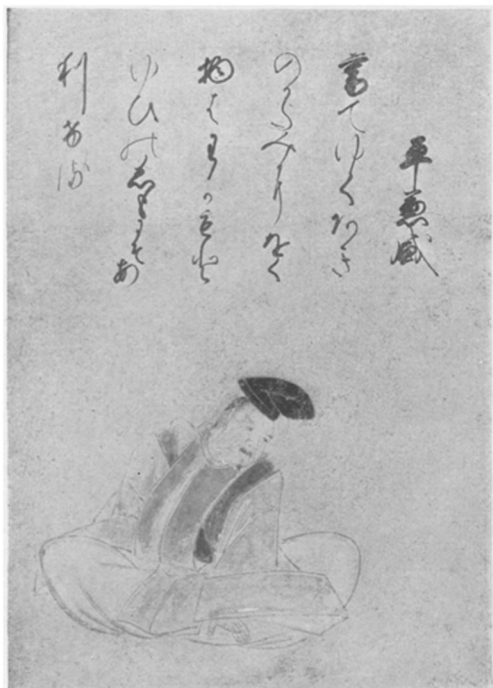 平兼盛
暮てゆくあき
のかたみにをく
物はわかもと
ゆひの志もにそあ
利ける